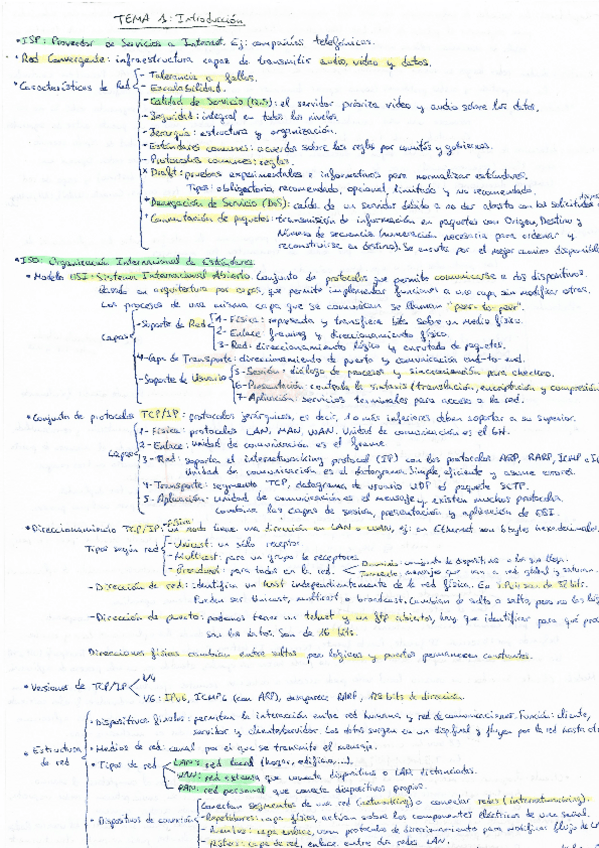 TEMA 1: Introducción
• ISP: Proveedor de Servicios a Internet. Ej: compañías telefónicas.
• Red Convergente: infraestructura capaz de transmitir audio, video y datos.
• Características de Red
- Tolerancia a fallos.
- Escalabilidad.
- Calidad de Servicio (QoS): el servidor prioriza video y audio sobre los datos.
- Seguridad: integral en todos los niveles.
- Jerarquía: estructura y organización.
• Estándares comunes: acuerdos sobre las reglas por comités y gobiernos.
- Protocolos comunes: reglas.
* Draft: pruebas experimentales e informativas para normalizar estándares.
Tipos: obligatorio, recomendado, opcional, limitado y no recomendado.
* Denegación de Servicio (DoS): caída de un servidor debido a no dar abasto con las solicitudes
* Conmutación de paquetes: transmisión de información en paquetes con Origen, Destino y
Número de secuencia (numeración necesaria para ordenar y
reconstruirse en destino). Se enruta por el mejor camino disponible
• ISO: Organización Internacional de Estándares.
• Modelo OSI: Sistema Internacional Abierto. Conjunto de protocolos que permite comunicarse a dos dispositivos.
Basado en arquitectura por capas, que permite implementar funciones a una capa sin modificar otras.
Los procesos de una misma capa que se comunican se llaman "peer to peer".
Capas
- Soporte de Red
1- Física: representa y transfiere bits sobre un medio físico.
2- Enlace: framing y direccionamiento físico.
3- Red: direccionamiento lógico y enrutado de paquetes.
4- Capa de Transporte: direccionamiento de puerto y comunicación end-to-end.
- Soporte de Usuario
5- Sesión: diálogo de procesos y sincronización para checkeo.
6- Presentación: controla la sintaxis (translación, encriptación y compresión
7- Aplicación: servicios terminales para acceso a la red.
• Conjunto de protocolos TCP/IP: protocolos jerárquicos, es decir, los más inferiores deben soportar a su superior.
Capas
1- Física: protocolos LAN, MAN, WAN. Unidad de comunicación es el bit.
2- Enlace: unidad de comunicación es el frame
3- Red: soporta el internetworking protocol (IP) con los protocolos ARP, RARP, ICMP e
Unidad de comunicación es el datagrama. Simple, eficiente y asume errores.
4- Transporte: segmento TCP, datagrama de usuario UDP el paquete SCTP.
5- Aplicación: unidad de comunicación es el mensaje y existen muchos protocolos.
combina las capas de sesión, presentación y aplicación de OSI.
• Direccionamiento TCP/IP: - Física: un nodo tiene una dirección en LAN o WAN, ej: en Ethernet son 6 bytes hexadecimales.
Tipos según red
- Unicast: un sólo receptor
- Multicast: para un grupo de receptores
- Broadcast: para todos en la red.
Dominio: conjunto de dispositivos a los que llega.
Tormenta: mensajes que van a red global y saturan
- Dirección de red: identifica un host independientemente de la red física. En IPv4 son de 32 bits.
Pueden ser Unicast, multicast o broadcast. Cambian de salto a salto, pero no las lóg
- Dirección de puerto: podemos tener un telnet y un ftp abiertos, hay que identificar para qué pro
son los datos. Son de 16 bits.
Direcciones físicas cambian entre saltos pero lógicas y puertos permanecen constantes.
• Versiones de TCP/IP
V4
V6: IPv6, ICMP6 (con ARP), desaparece RARP, 128 bits de dirección.
• Estructura de red
- Dispositivos finales: permiten la interacción entre red humana y red de comunicaciones. Función: cliente,
servidor y cliente/servidor. Los datos surgen en un disp. final y fluyen por la red hasta
• Medios de red: canal por el que se transmite el mensaje.
• Tipos de red
LAN: red local (hogar, edificio, ...).
WAN: red extensa que conecta dispositivos o LAN distanciadas.
PAN: red personal que conecta dispositivos propios.
- Dispositivos de conexión
Conectan segmentos de una red (networking) o conectar redes (internetworking).
- Repetidores: capa física, actúan sobre los componentes eléctricos de una señal.
- capa enlace, usan protocolos de direccionamiento para modificar flujo de
- capa de red, enlace entre dos redes LAN.